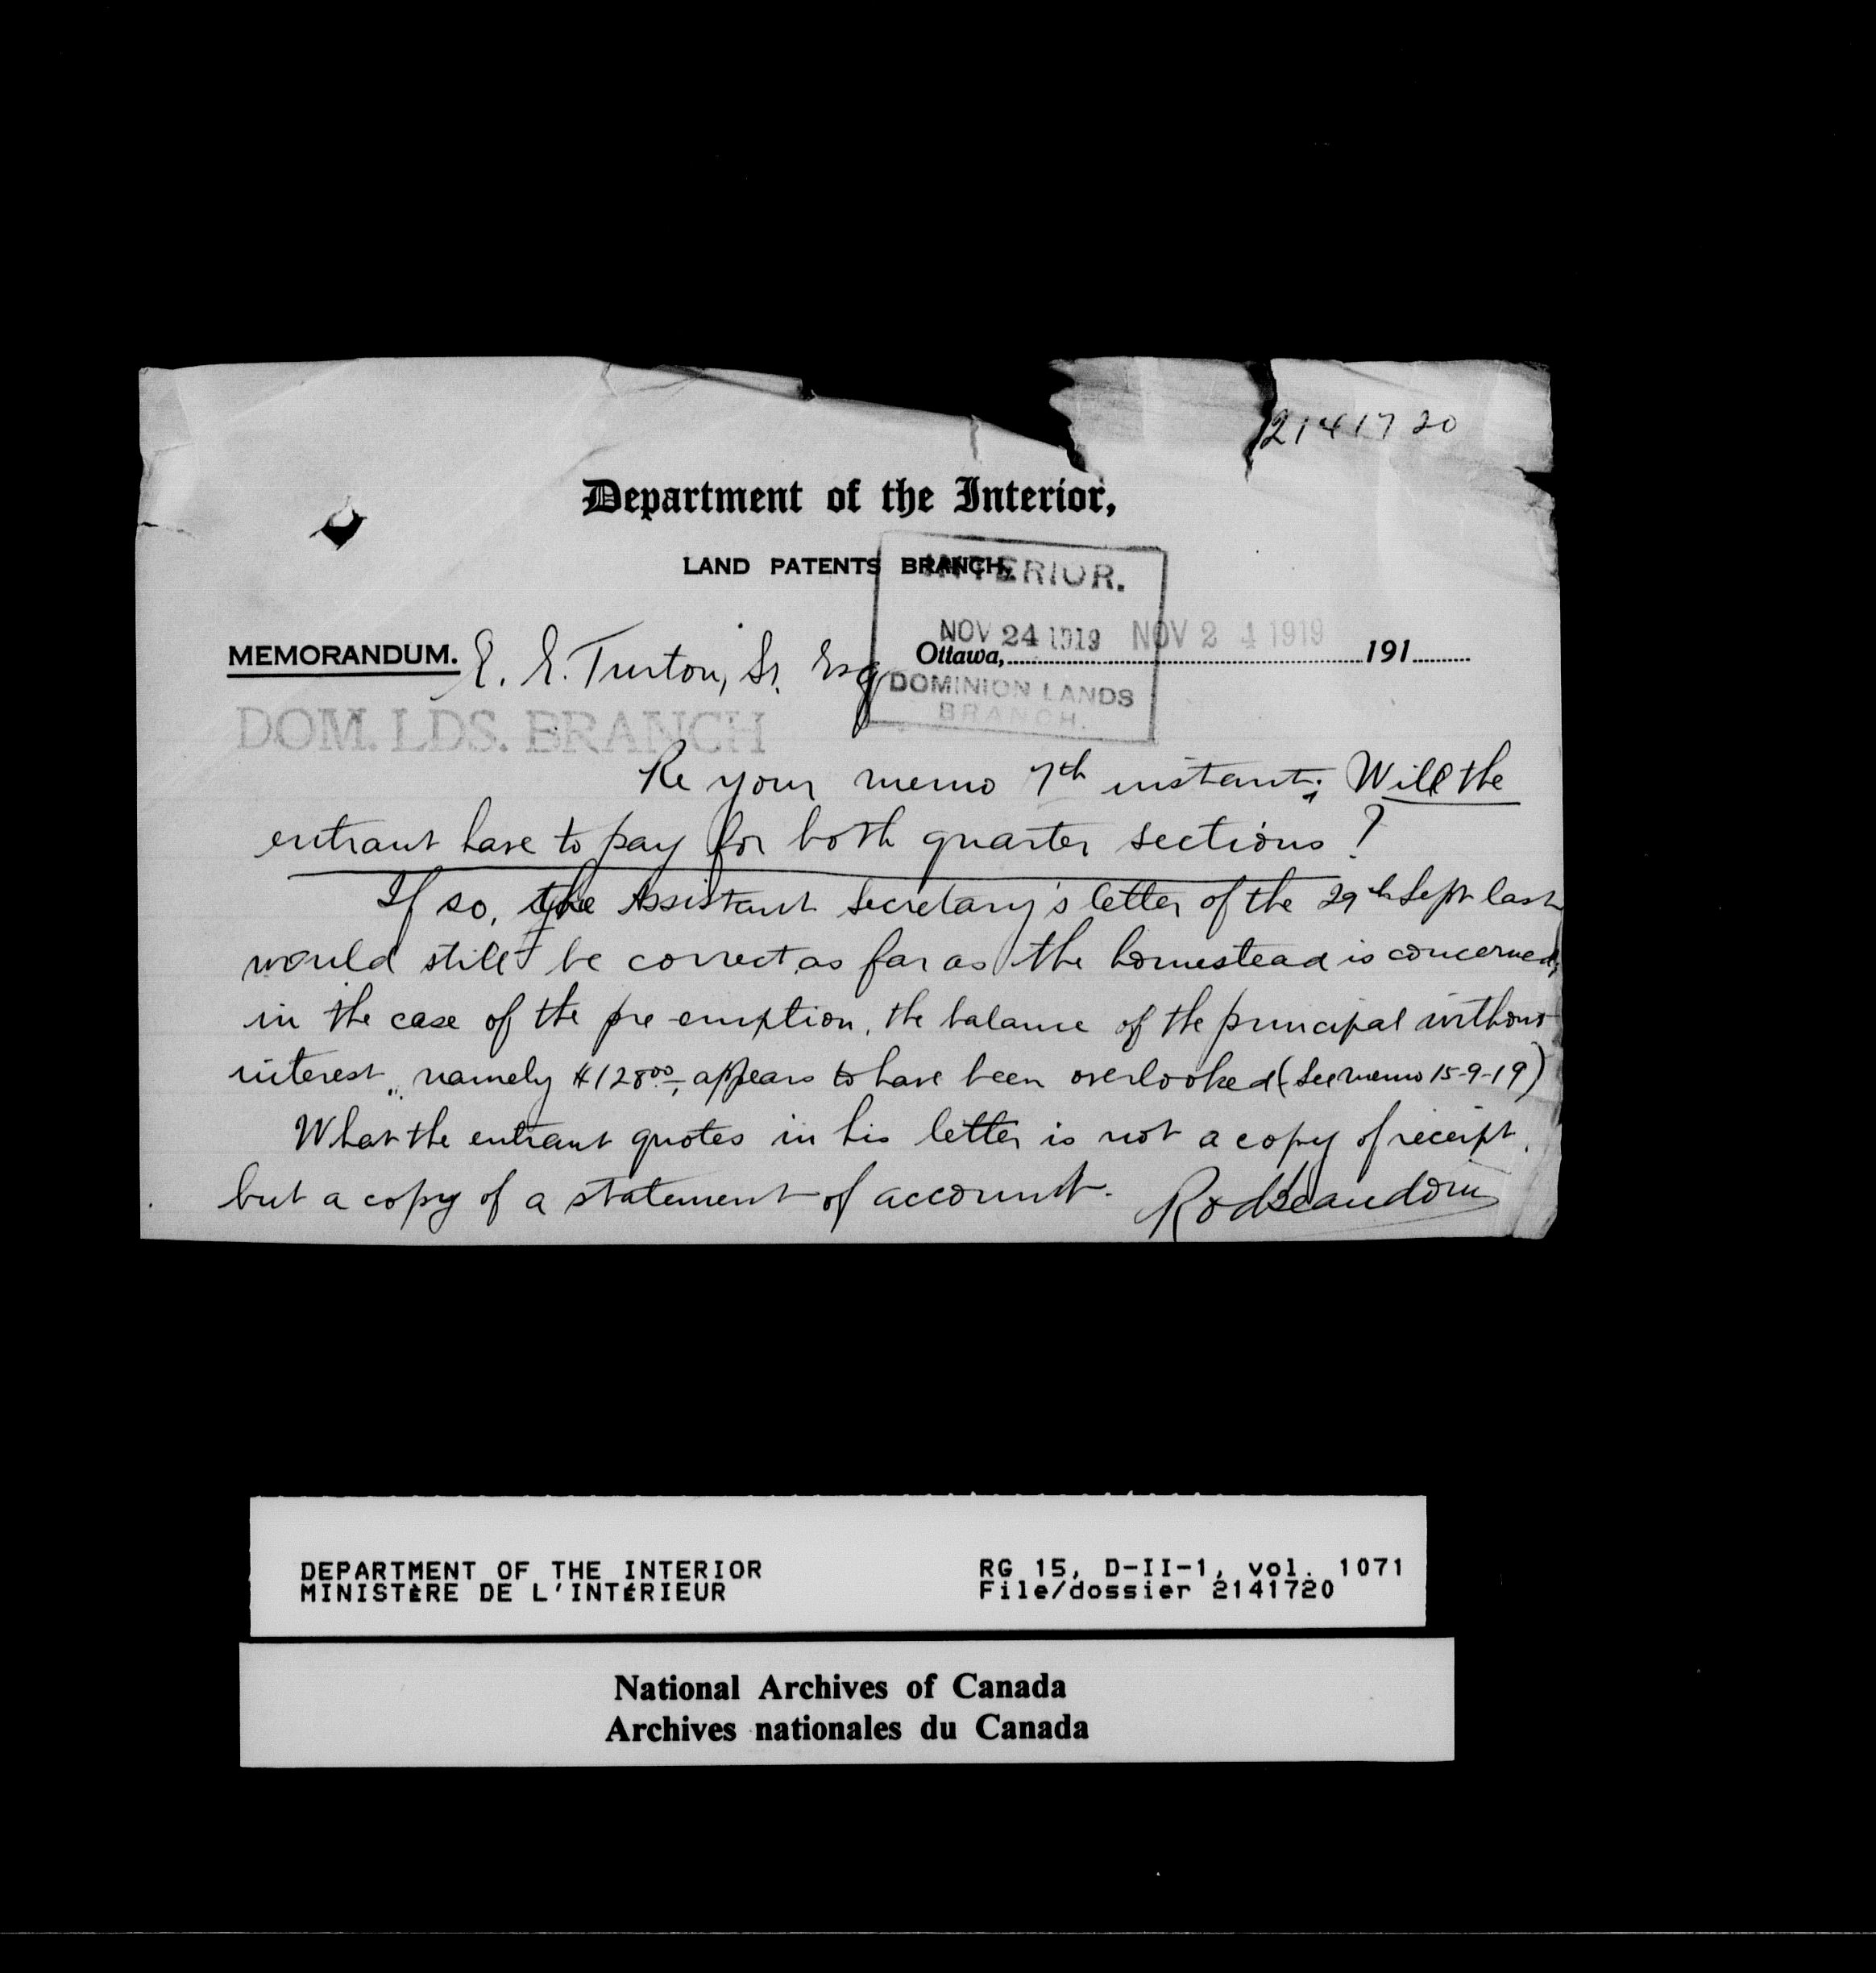 2141720
Department of the Interior,
LAND PATENTS BRANCH,
INTERIOR.
NOV 24 1919 NOV 24 1919
MEMORANDUM. E. E. Turton, Sr. Esq
Ottawa, 191
DOMINION LANDS
BRANCH.
DOM. LDS. BRANCH
Re your memo 7th instant; Will the
entrant have to pay for both quarter sections?
If so, the Assistant Secretary's letter of the 29th Sept last
would still be correct as far as the homestead is concerned;
in the case of the pre-emption, the balance of the principal without
interest, namely $128.00, appears to have been overlooked (See memo 15-9-19)
What the entrant quotes in his letter is not a copy of receipt,
but a copy of a statement of account. Rod Beaudoin
DEPARTMENT OF THE INTERIOR
MINISTÈRE DE L'INTÉRIEUR
RG 15, D-II-1, vol. 1071
File/dossier 2141720
National Archives of Canada
Archives nationales du Canada